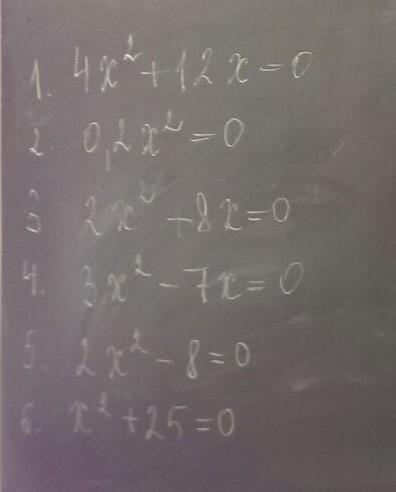 1. 4x² + 12x = 0
2 0,2x² = 0
3 2x² + 8x = 0
4. 3x² - 7x = 0
5. 2x² - 8 = 0
6. x² + 25 = 0